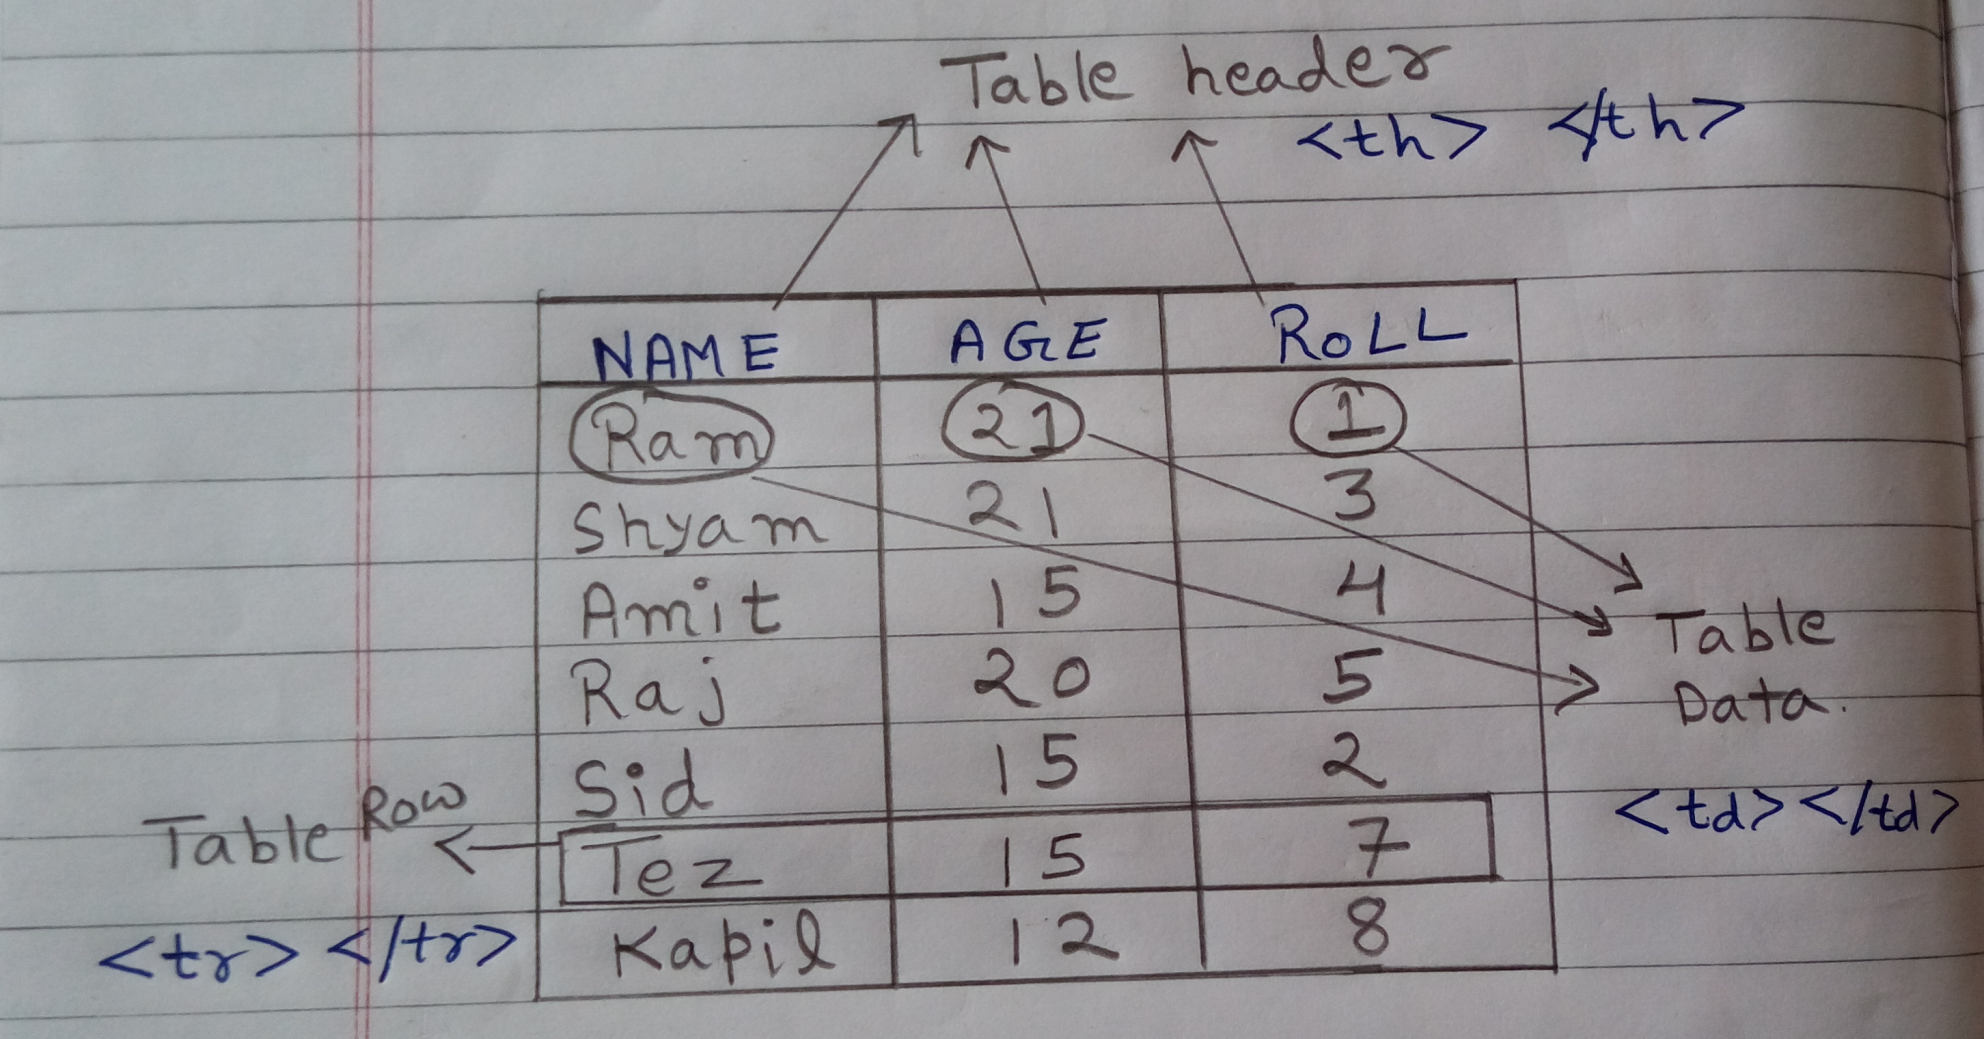 Table header
<th> </th>
NAME AGE ROLL
Ram 21 1
Shyam 21 3
Amit 15 4
Raj 20 5
Sid 15 2
Tez 15 7
Kapil 12 8
Table
Data.
<td></td>
Table Row
<tr> </tr>